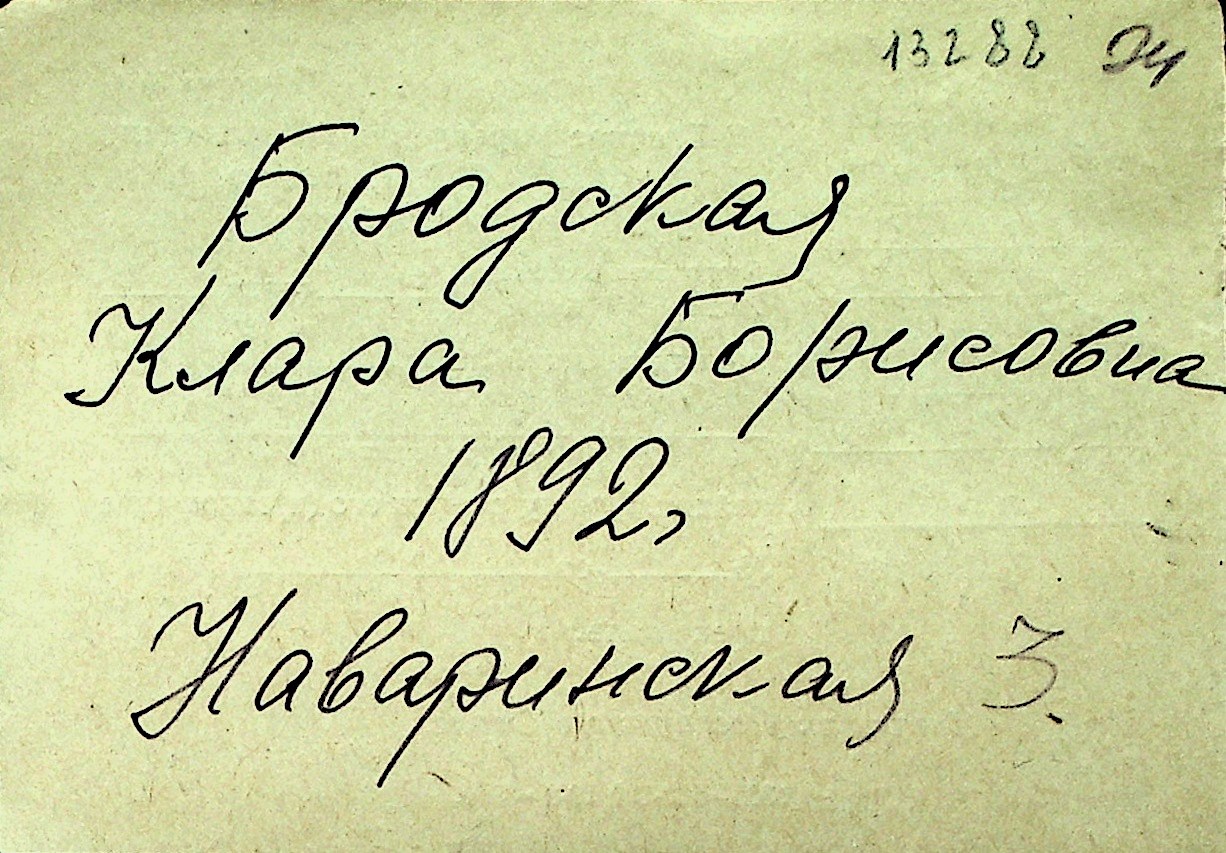 13288 24
Бродская
Клара Борисовна
1892,
Наваринская 3.